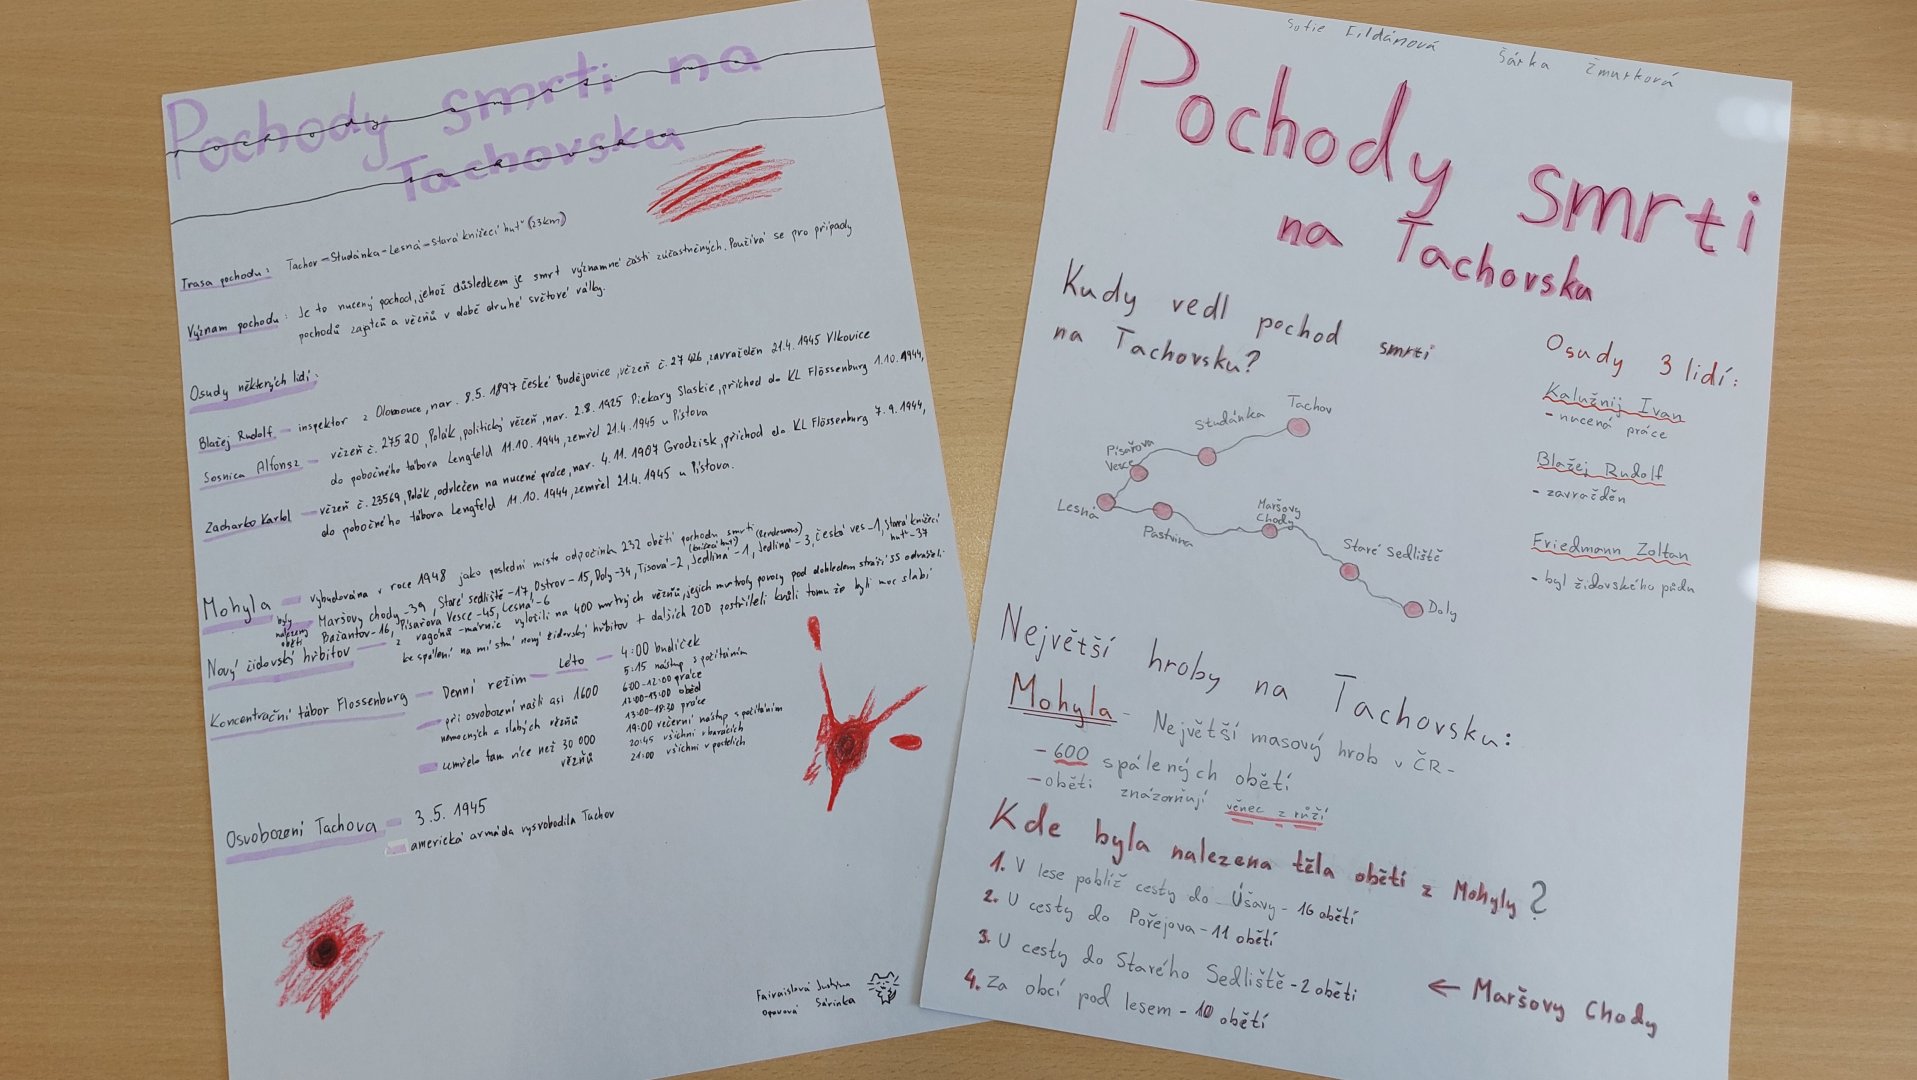 Pochody smrti na
Tachovsku
Trasa pochodu: Tachov - Studánka - Lesná - Stará knížecí huť (23km)
Význam pochodu: Je to nucený pochod, jehož důsledkem je smrt významné části zúčastněných. Používá se pro případy
pochodů zajatců a vězňů v době druhé světové války.
Osudy některých lidí:
Blažej Rudolf - inspektor z Olomouce, nar. 8.5. 1897 České Budějovice, vězeň č. 27 426, zavražděn 21.4. 1945 Vlkovice
Sosnica Alfonsz - vězeň č. 27520, Polák, politický vězeň, nar. 2.8. 1925 Piekary Slaskie, příchod do KL Flössenburg 1.10. 1944,
do pobočného tábora Lengfeld 11.10. 1944, zemřel 21.4. 1945 u Pístova
Zacharko Karol - vězeň č. 23569, Polák, odvlečen na nucené práce, nar. 4. 11. 1907 Grodzisk, příchod do KL Flössenburg 7. 9. 1944,
do pobočného tábora Lengfeld 11.10. 1944, zemřel 21.4. 1945 u Pístova.
Mohyla - vybudována v roce 1948 jako poslední místo odpočinku 232 obětí pochodu smrti
byly nalezeny oběti Maršovy chody - 39, Staré sedliště - 17, Ostrov - 15, Doly - 34, Tisová - 2, Jedlina - 1, Jedlina - 3, česká ves - 1, Stará knížecí huť - 37
Bažantov - 16, Písařova Vesce - 45, Lesná - 6
Nový židovský hřbitov - z vagónů - márnic vyložili na 400 mrtvých vězňů, jejich mrtvoly povozy pod dohledem stráží SS odváželi
ke spálení na místní nový židovský hřbitov + dalších 200 postříleli kvůli tomu že byli moc slabí
Koncentrační tábor Flossenburg - Denní režim - Léto - 4:00 budíček
5:15 nástup s počítáním
6:00-12:00 práce
12:00-13:00 oběd
13:00-18:30 práce
19:00 večerní nástup s počítáním
20:45 všichni v barácích
21:00 všichni v postelích
- při osvobození našli asi 1600
nemocných a slabých vězňů
- umřelo tam více než 30 000
vězňů
Osvobození Tachova - 3.5. 1945
- americká armáda vysvobodila Tachov
Justýna
Opavová Sárinka
Sofie Šárka Žmurková
Pochody smrti
na Tachovska
Kudy vedl pochod smrti
na Tachovsku?
Tachov
Studánka
Písařova
Vesce
Lesná
Pastvina
Maršovy
Chody
Staré Sedliště
Doly
Osudy 3 lidí:
Kalužnij Ivan
- nucená práce
Blažej Rudolf
- zavražděn
Friedmann Zoltan
- byl židovského původu
Největší hroby na Tachovsku:
Mohyla - Největší masový hrob v ČR -
- 600 spálených obětí
- oběti znázorňují věnec z růží
Kde byla nalezena těla obětí z Mohyly?
1. V lese poblíž cesty do Úšavy - 16 obětí
2. U cesty do Pořejova - 11 obětí
3. U cesty do Starého Sedliště - 2 oběti
4. Za obcí pod lesem - 10 obětí
← Maršovy Chody